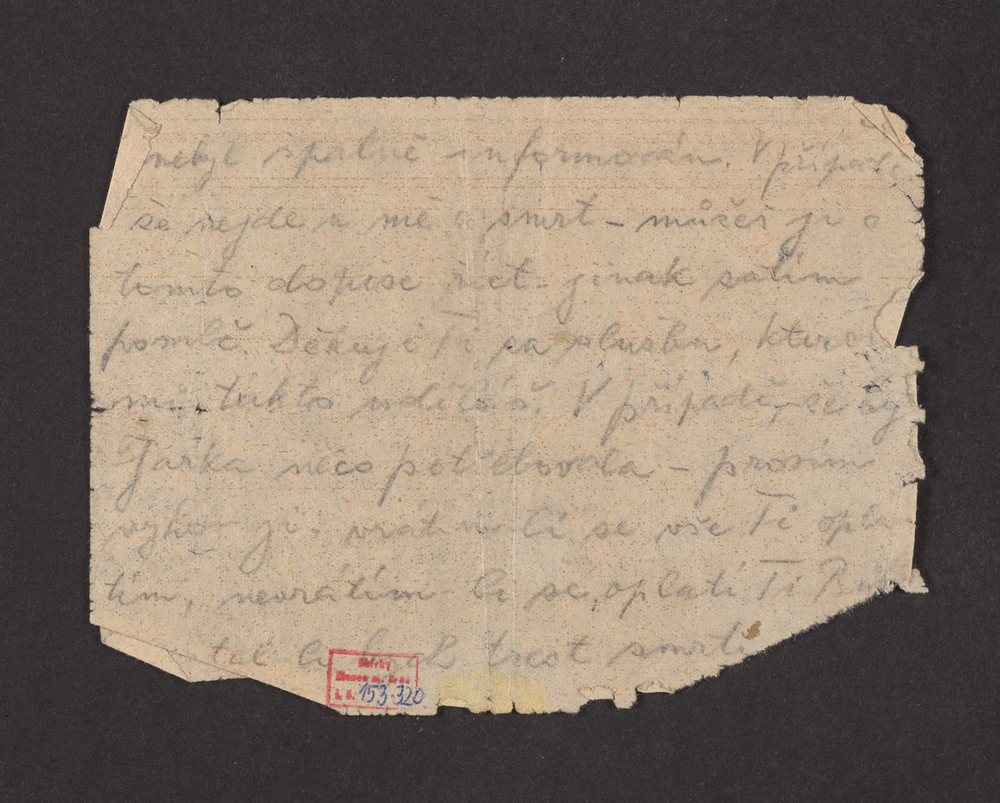 nebyl špatně informován. V případě
že nejde u mě o smrt – můžeš jí o
tomto dopise říct. jinak zatím
pomlč. Děkuji Ti za službu, kterou
mi takto uděláš. V případě, že by
Jarka něco potřebovala – prosím
vyhov jí. vrátím li se vše Ti opla-
tím, nevrátím li se, oplatí Ti
trest smrti
Sbírky
Musea m. Brna
i. č. 153.320